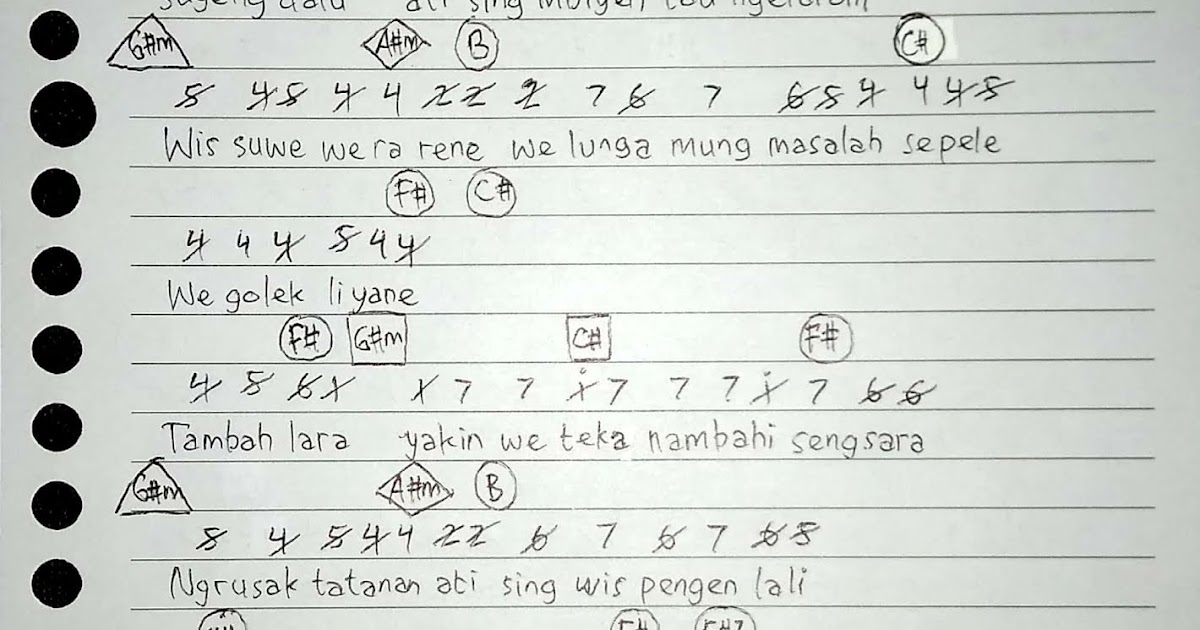 G#m A#m B C#
5 4 5 4 4 2 2 2 7 6 7 6 5 4 4 4 5
Wis suwe we ra rene we lunga mung masalah sepele
F# C#
4 4 4 5 4 4
We golek liyane
F# G#m C# F#
4 5 6 1 1 7 7 1 7 7 7 1 7 6 6
Tambah lara yakin we teka nambahi sengsara
G#m A#m B
5 4 5 4 4 2 2 6 7 6 7 6 5
Ngrusak tatanan ati sing wis pengen lali